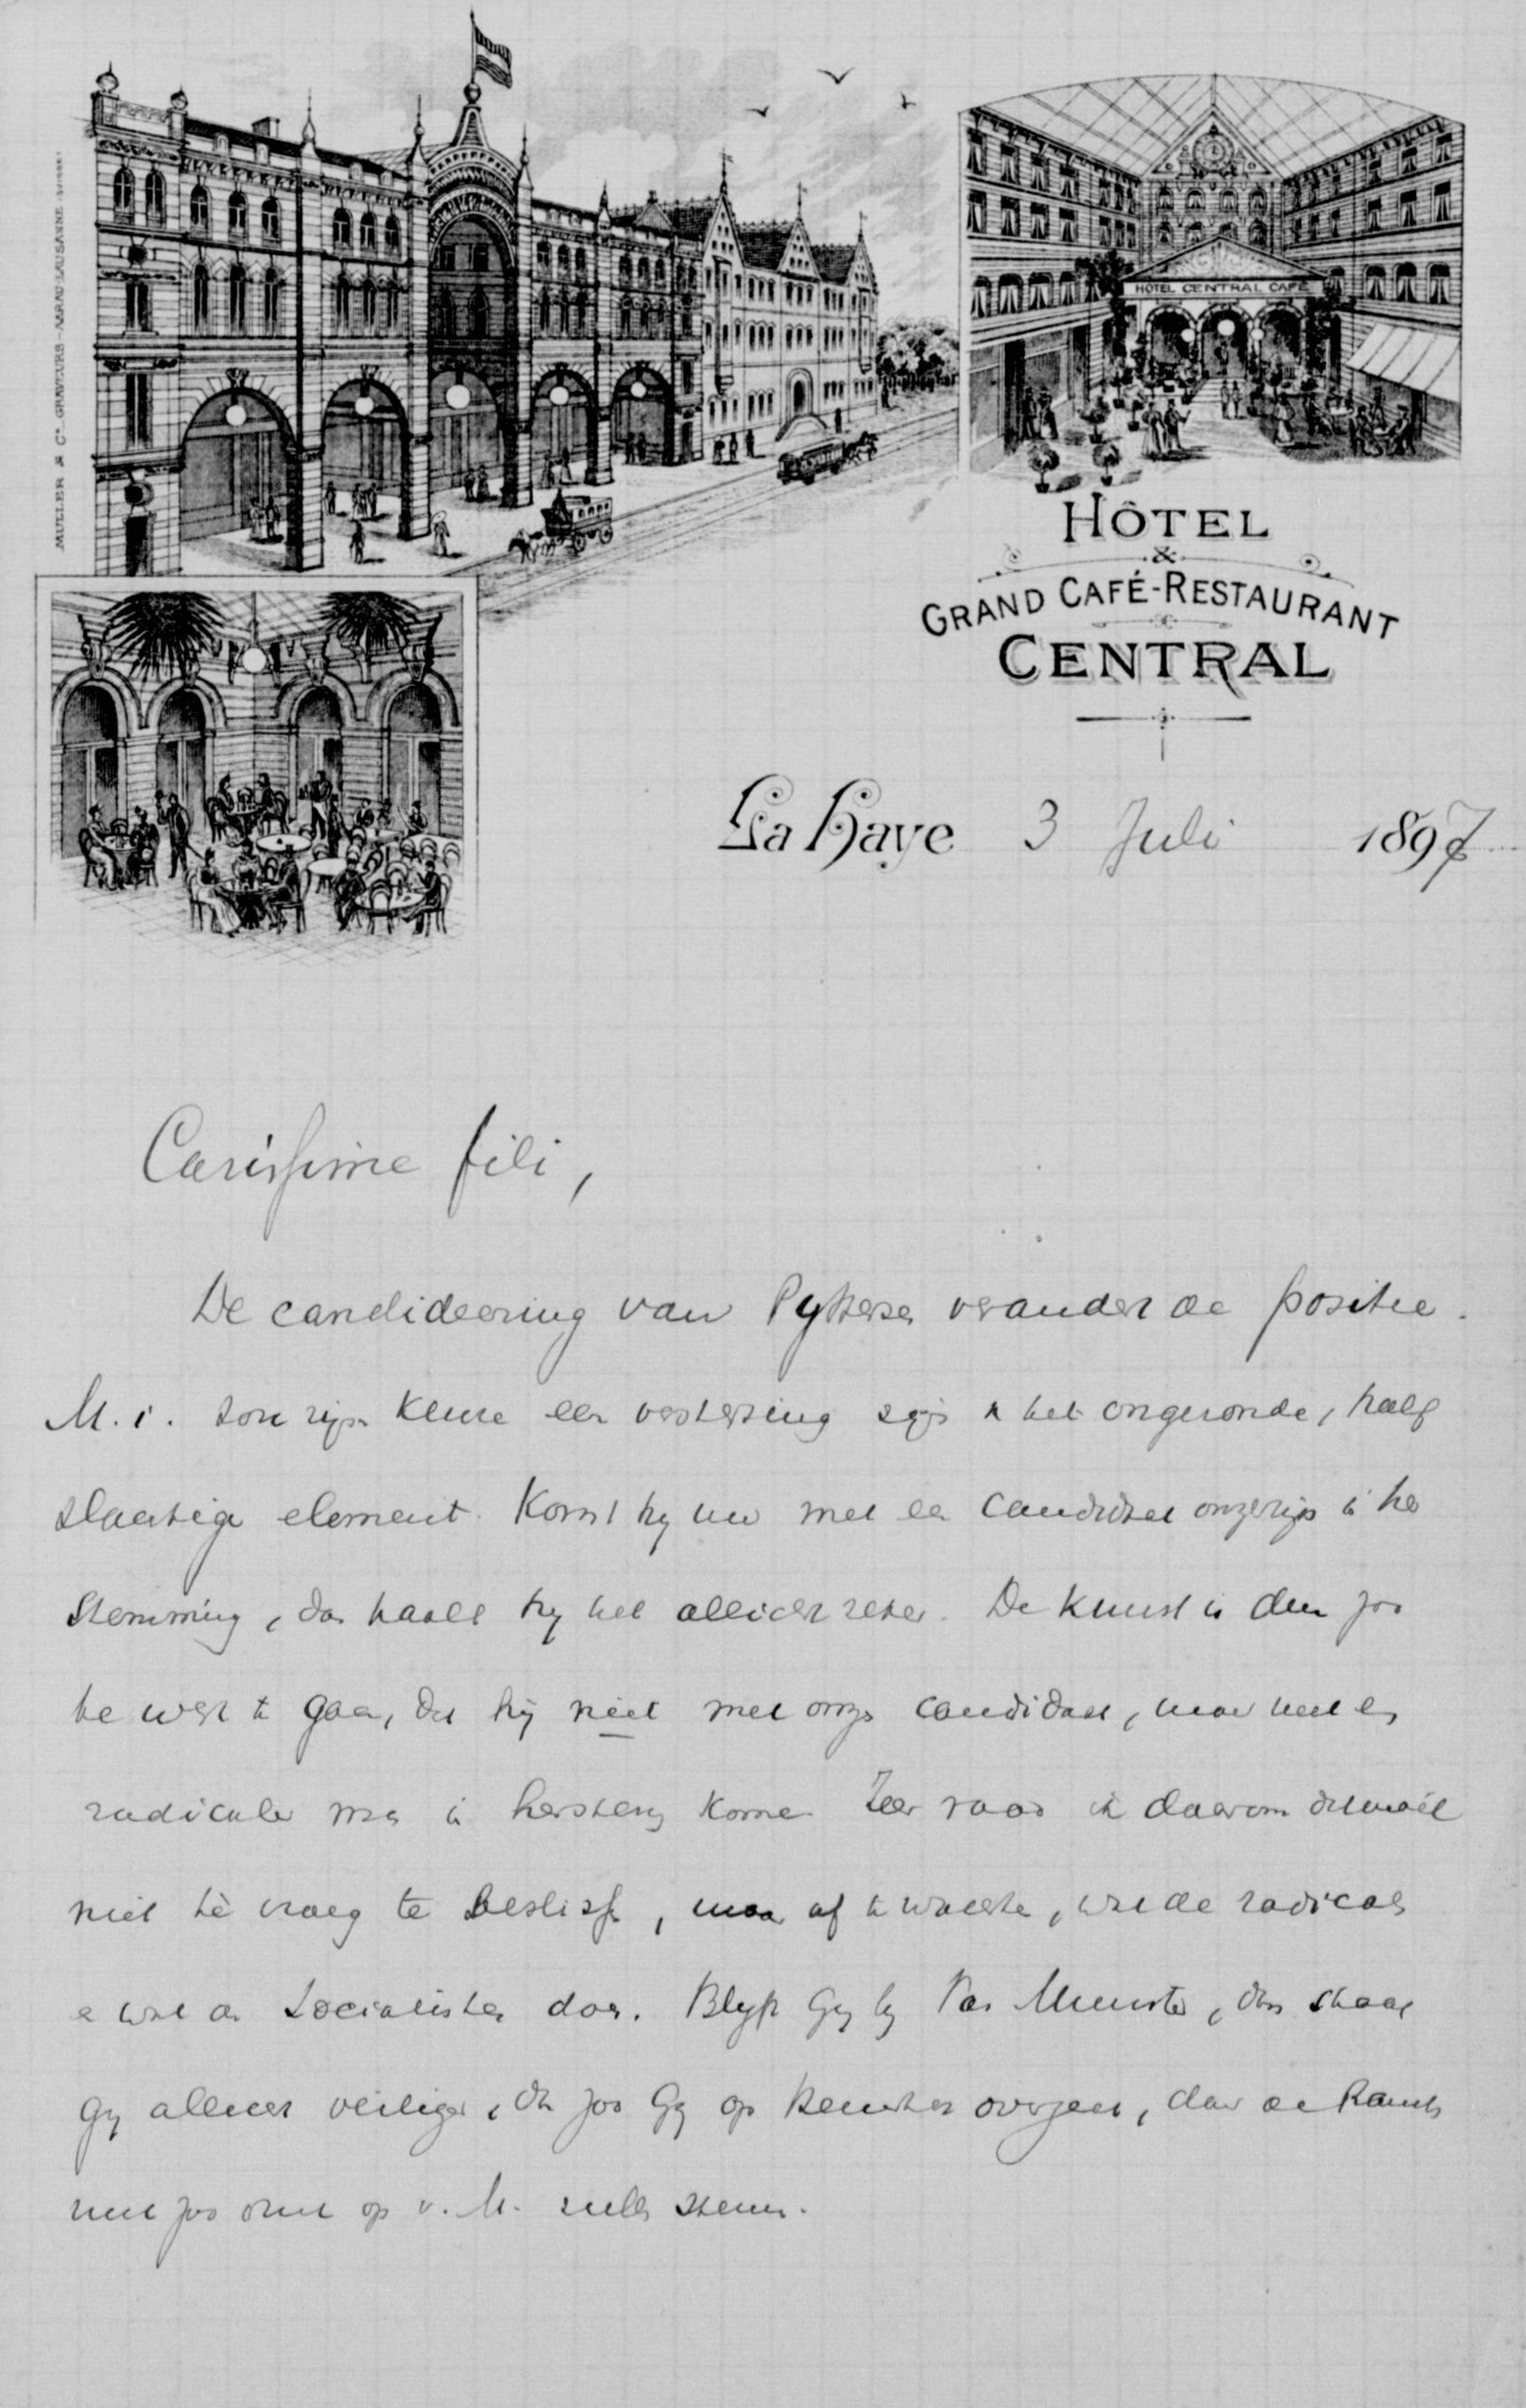 MULLER & Co GRAVEURS AARAU LAUSANNE
HÔTEL CENTRAL CAFÉ
HÔTEL
&
GRAND CAFÉ-RESTAURANT
CENTRAL
La Haye 3 Juli 1897
Carissime fili,
De candideering van verandert de positie.
M. i. zou zijn keuze een versterking zijn het ongezonde, half
slachtige element. Komt hij nu met een candidaat onzerzijds in her
stemming, dan haalt hij het allicht zeker. De kunst is dus zoo
te werk te gaan, dat hij niet met onze candidaat, maar met een
radicale man in herstemg komen. Zeer raad ik daarom ditmaal
niet te vroeg te beslissen, maar af te wachten, wat de radicalen
en wat de Socialisten doen. Blijft Gij bij Van Munster, dan staat
Gij allicht veiliger, dan zoo Gij op overgaat, daar de
niet zoo druk op v. M. zullen stemmen.